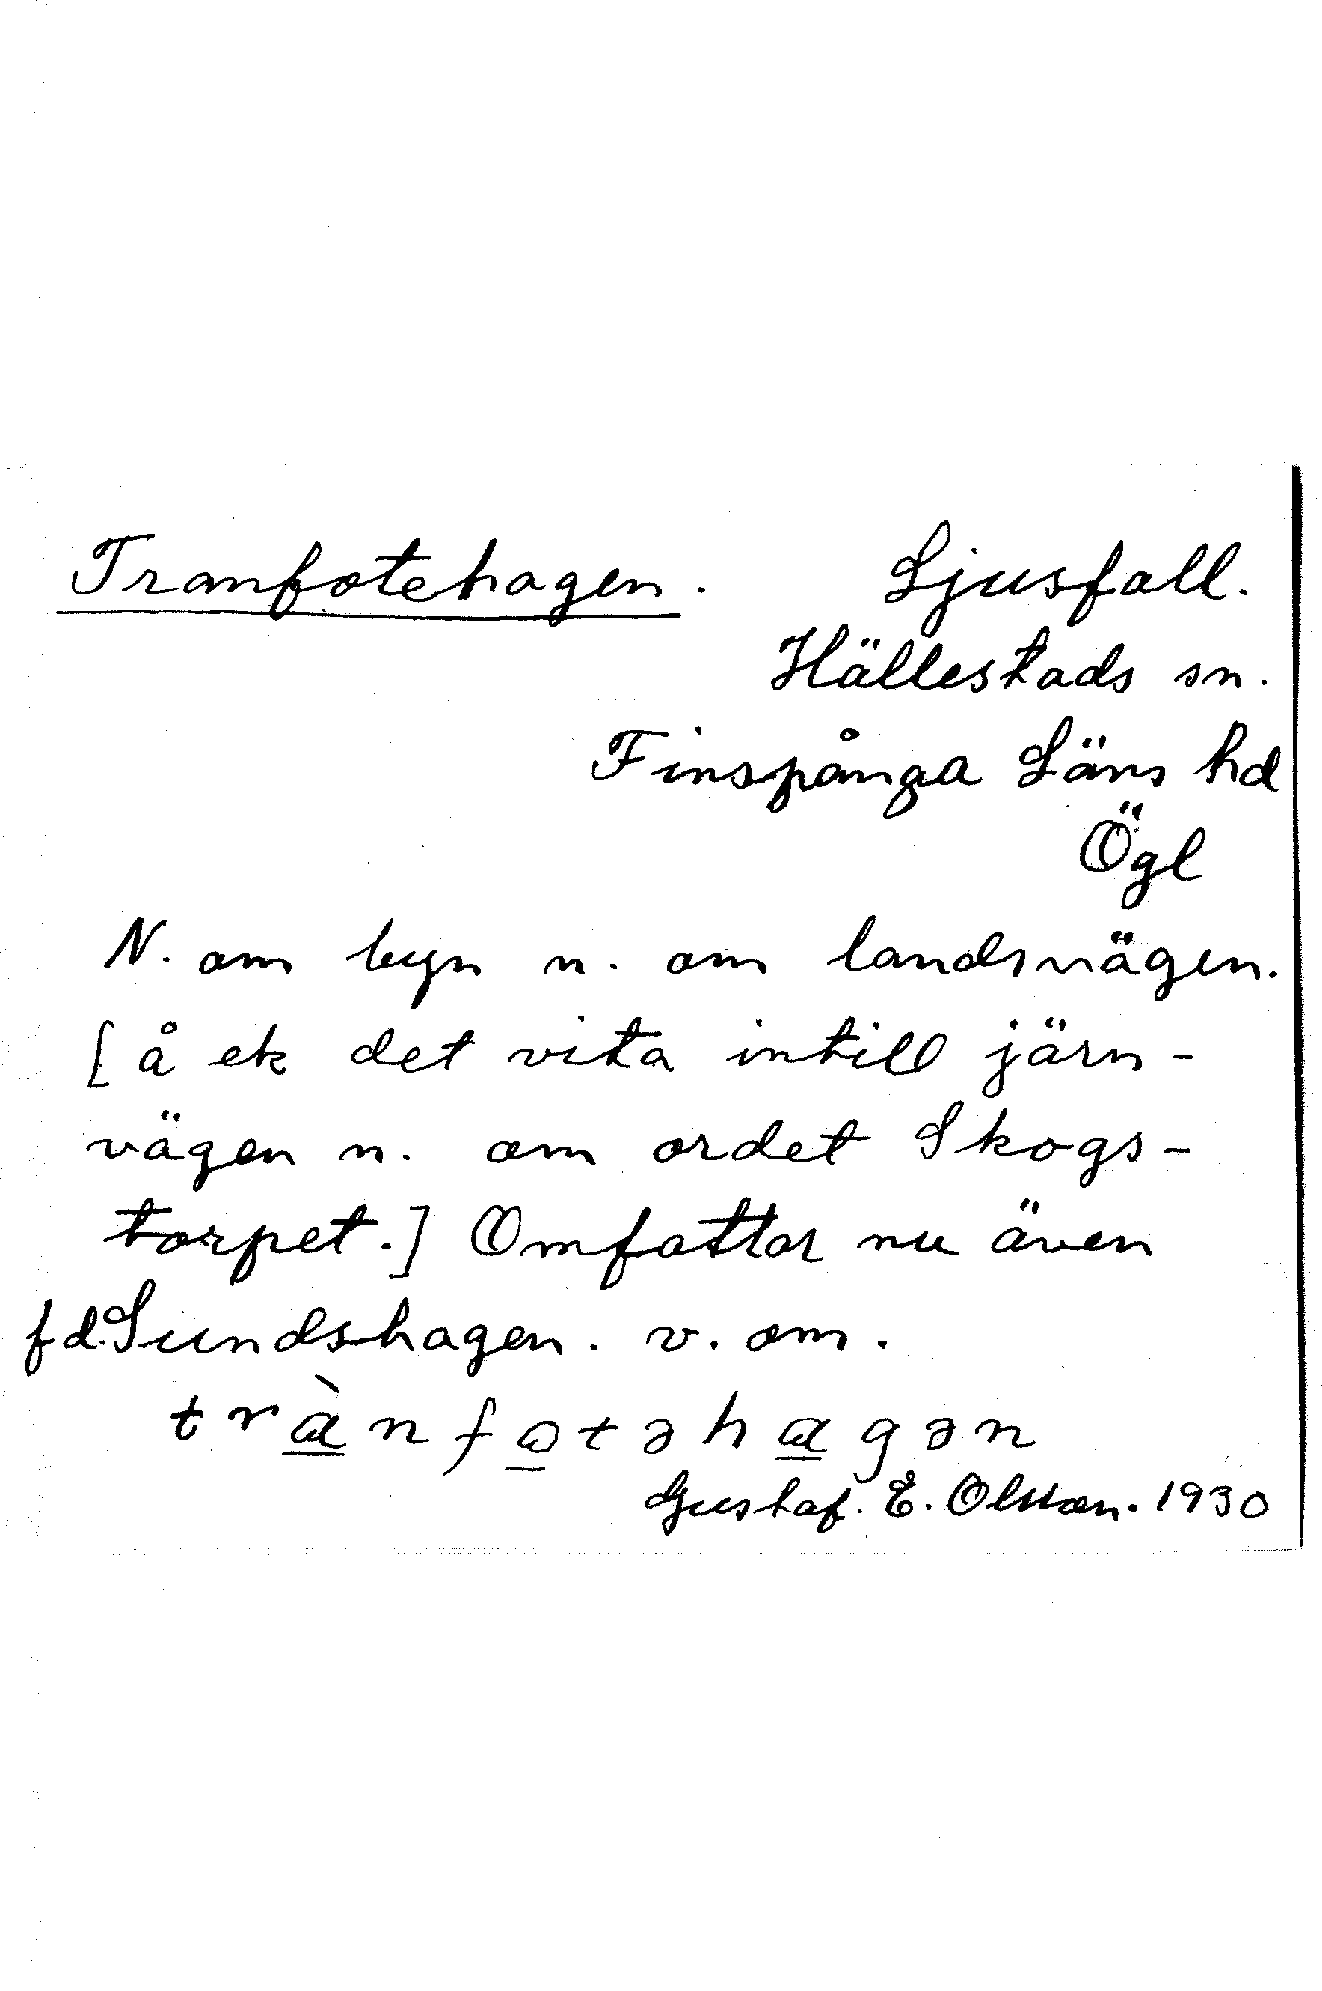 Tranfotehagen. Ljusfall.
Hällestads sn.
Finspånga Läns hd
Ögl
N. om byn n. om landsvägen.
[å ek det vita intill järn-
vägen n. om ordet Skogs-
torpet.] Omfattar nu även
fd. Sundshagen. v. om.
trànfotəhagən
Gustaf. E. Olsson. 1930